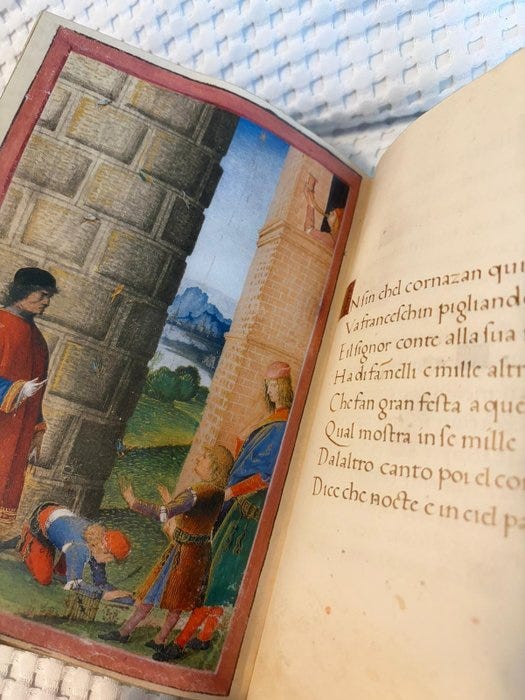 INfin chel cornazan qui
Va franceschin pigliand
E il signor conte alla sua
Ha di fāнelli e mille altr
Che fan gran festa a que
Qual mostra in se mille
Dalaltro canto poi el co
Dice che nocte e in ciel p